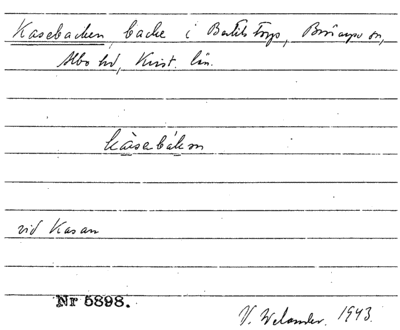 Kasebacken, backe i Bertilstorp, Brösarps sn,
Albo hd, Krist. län.
kàsebákₐn
vid Kasan
Nr 5898.
V. Welander. 1943.